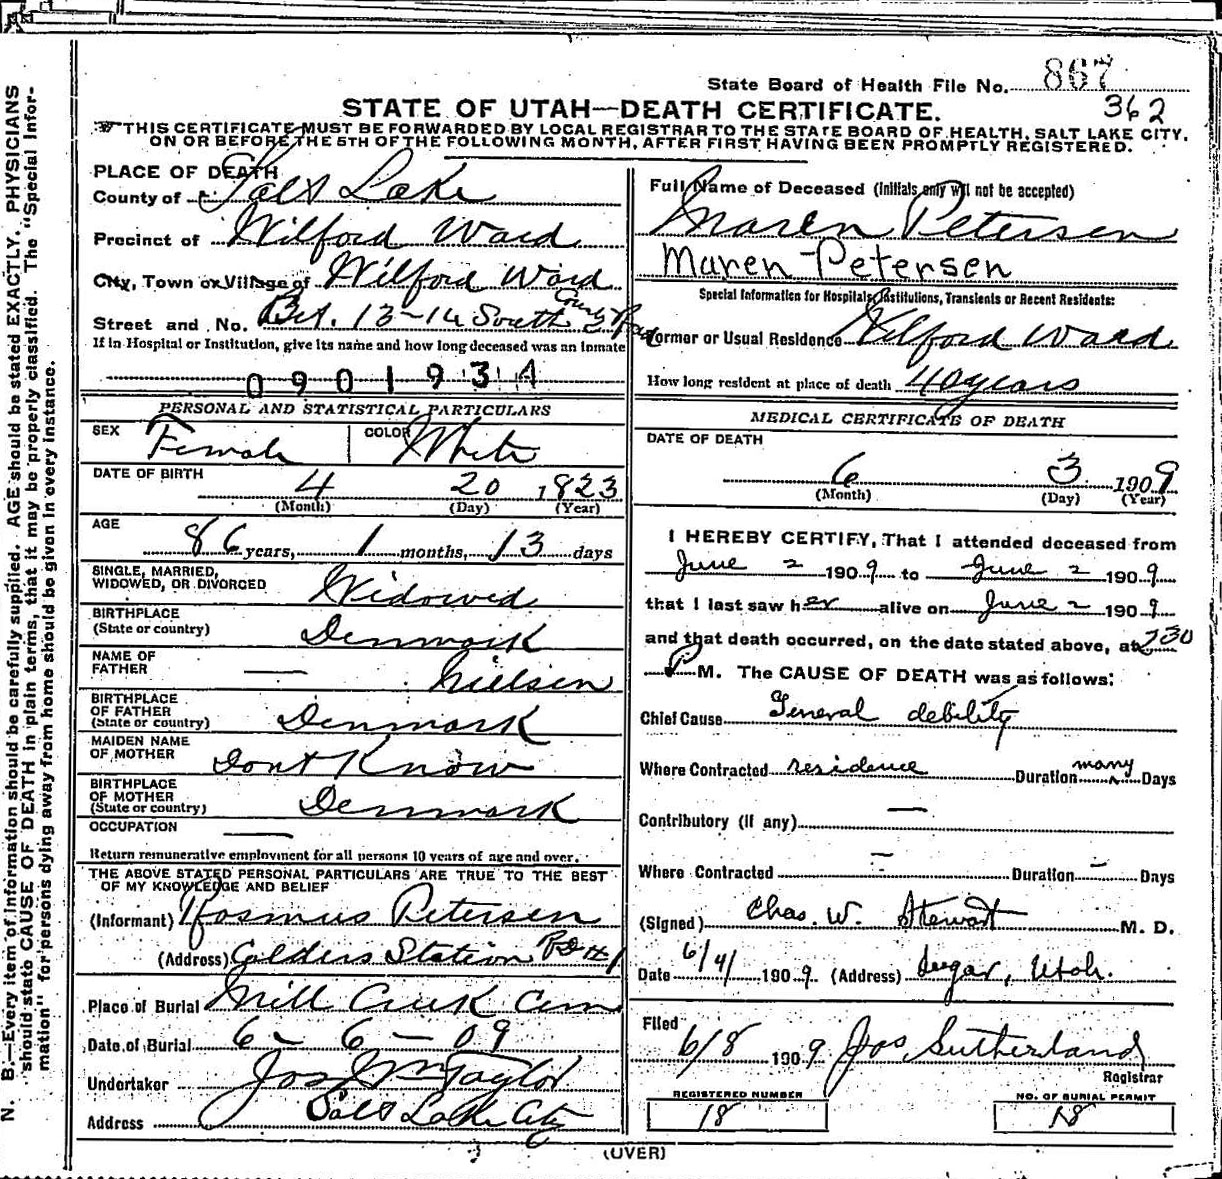 State Board of Health File No. 867
362
STATE OF UTAH—DEATH CERTIFICATE.
THIS CERTIFICATE MUST BE FORWARDED BY LOCAL REGISTRAR TO THE STATE BOARD OF HEALTH, SALT LAKE CITY,
ON OR BEFORE THE 5TH OF THE FOLLOWING MONTH, AFTER FIRST HAVING BEEN PROMPTLY REGISTERED.
N. B.—Every item of information should be carefully supplied. AGE should be stated EXACTLY. PHYSICIANS
should state CAUSE OF DEATH in plain terms, that it may be properly classified. The "Special Infor-
mation" for persons dying away from home should be given in every instance.
PLACE OF DEATH
County of Salt Lake
Precinct of Wilford Ward
City, Town or Village of Wilford Ward
Street and No. Bet. 13-14 South County Road
If in Hospital or Institution, give its name and how long deceased was an inmate
0901934
PERSONAL AND STATISTICAL PARTICULARS
SEX Female COLOR White
DATE OF BIRTH
4 20 1823
(Month) (Day) (Year)
AGE
86 years, 1 months, 13 days
SINGLE, MARRIED,
WIDOWED, OR DIVORCED Widowed
BIRTHPLACE
(State or country) Denmark
NAME OF
FATHER — Nielsen
BIRTHPLACE
OF FATHER
(State or country) Denmark
MAIDEN NAME
OF MOTHER Dont Know
BIRTHPLACE
OF MOTHER
(State or country) Denmark
OCCUPATION —
Return remunerative employment for all persons 10 years of age and over.
THE ABOVE STATED PERSONAL PARTICULARS ARE TRUE TO THE BEST
OF MY KNOWLEDGE AND BELIEF
(Informant) Rasmus Petersen
(Address) Calders Station RD #1
Place of Burial Mill Creek Cem
Date of Burial 6 - 6 - 09
Undertaker Jos Wm Taylor
Address Salt Lake City
Full Name of Deceased (Initials only will not be accepted)
Maren Petersen
Maren Petersen
Special Information for Hospitals, Institutions, Transients or Recent Residents:
Former or Usual Residence Wilford Ward
How long resident at place of death 40 years
MEDICAL CERTIFICATE OF DEATH
DATE OF DEATH
6 3 1909
(Month) (Day) (Year)
I HEREBY CERTIFY, That I attended deceased from
June 2 1909 to June 2 1909
that I last saw her alive on June 2 1909
and that death occurred, on the date stated above, at 730
P M. The CAUSE OF DEATH was as follows:
Chief Cause General debility
Where Contracted residence Duration many Days
Contributory (if any) —
Where Contracted — Duration — Days
(Signed) Chas. W. Stewart M. D.
Date 6/4/ 1909 (Address) Sugar, Utah.
Filed
6/8 1909 Jos Sutherland
Registrar
REGISTERED NUMBER
18
NO. OF BURIAL PERMIT
18
(OVER)